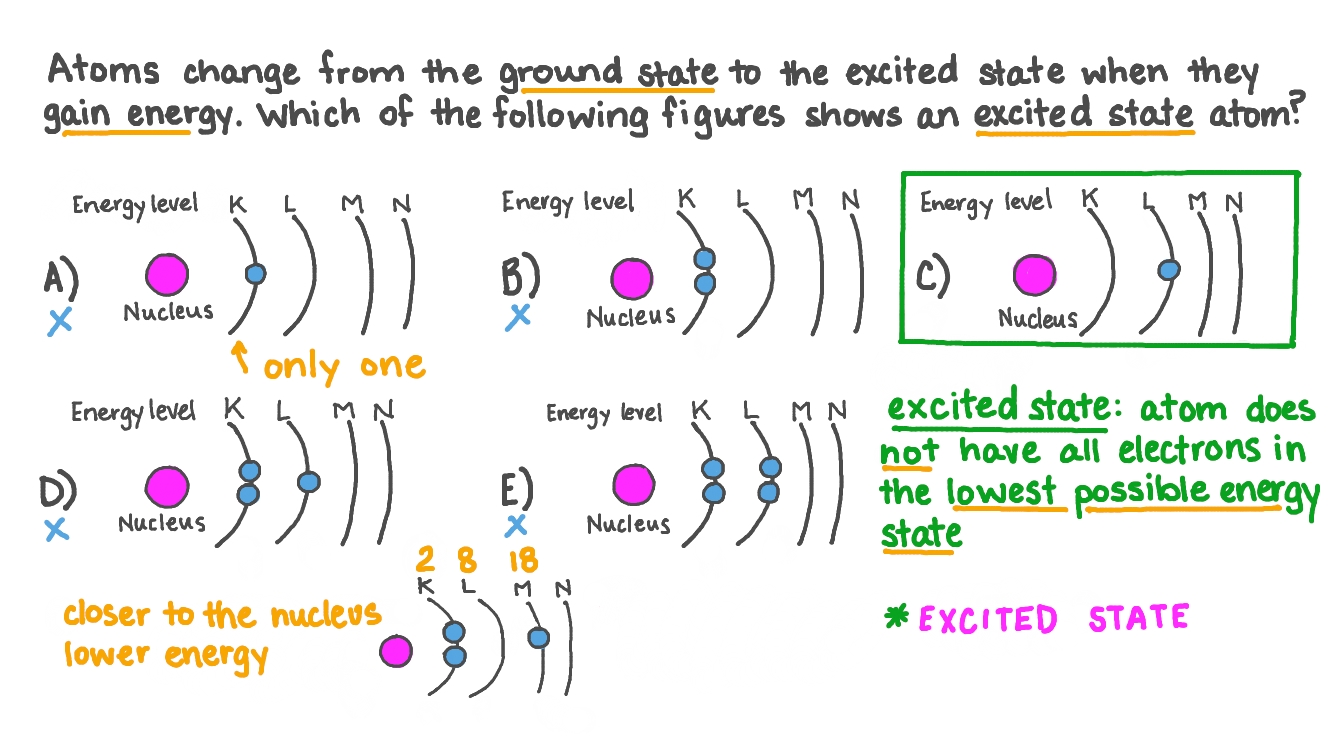 Atoms change from the ground state to the excited state when they
gain energy. Which of the following figures shows an excited state atom?
Energy level K L M N
A)
X
Nucleus
only one
Energy level K L M N
B)
X
Nucleus
Energy level K L M N
C)
Nucleus
Energy level K L M N
D)
X
Nucleus
Energy level K L M N
E)
X
Nucleus
excited state: atom does
not have all electrons in
the lowest possible energy
state
2 8 18
K L M N
closer to the nucleus
lower energy
* EXCITED STATE